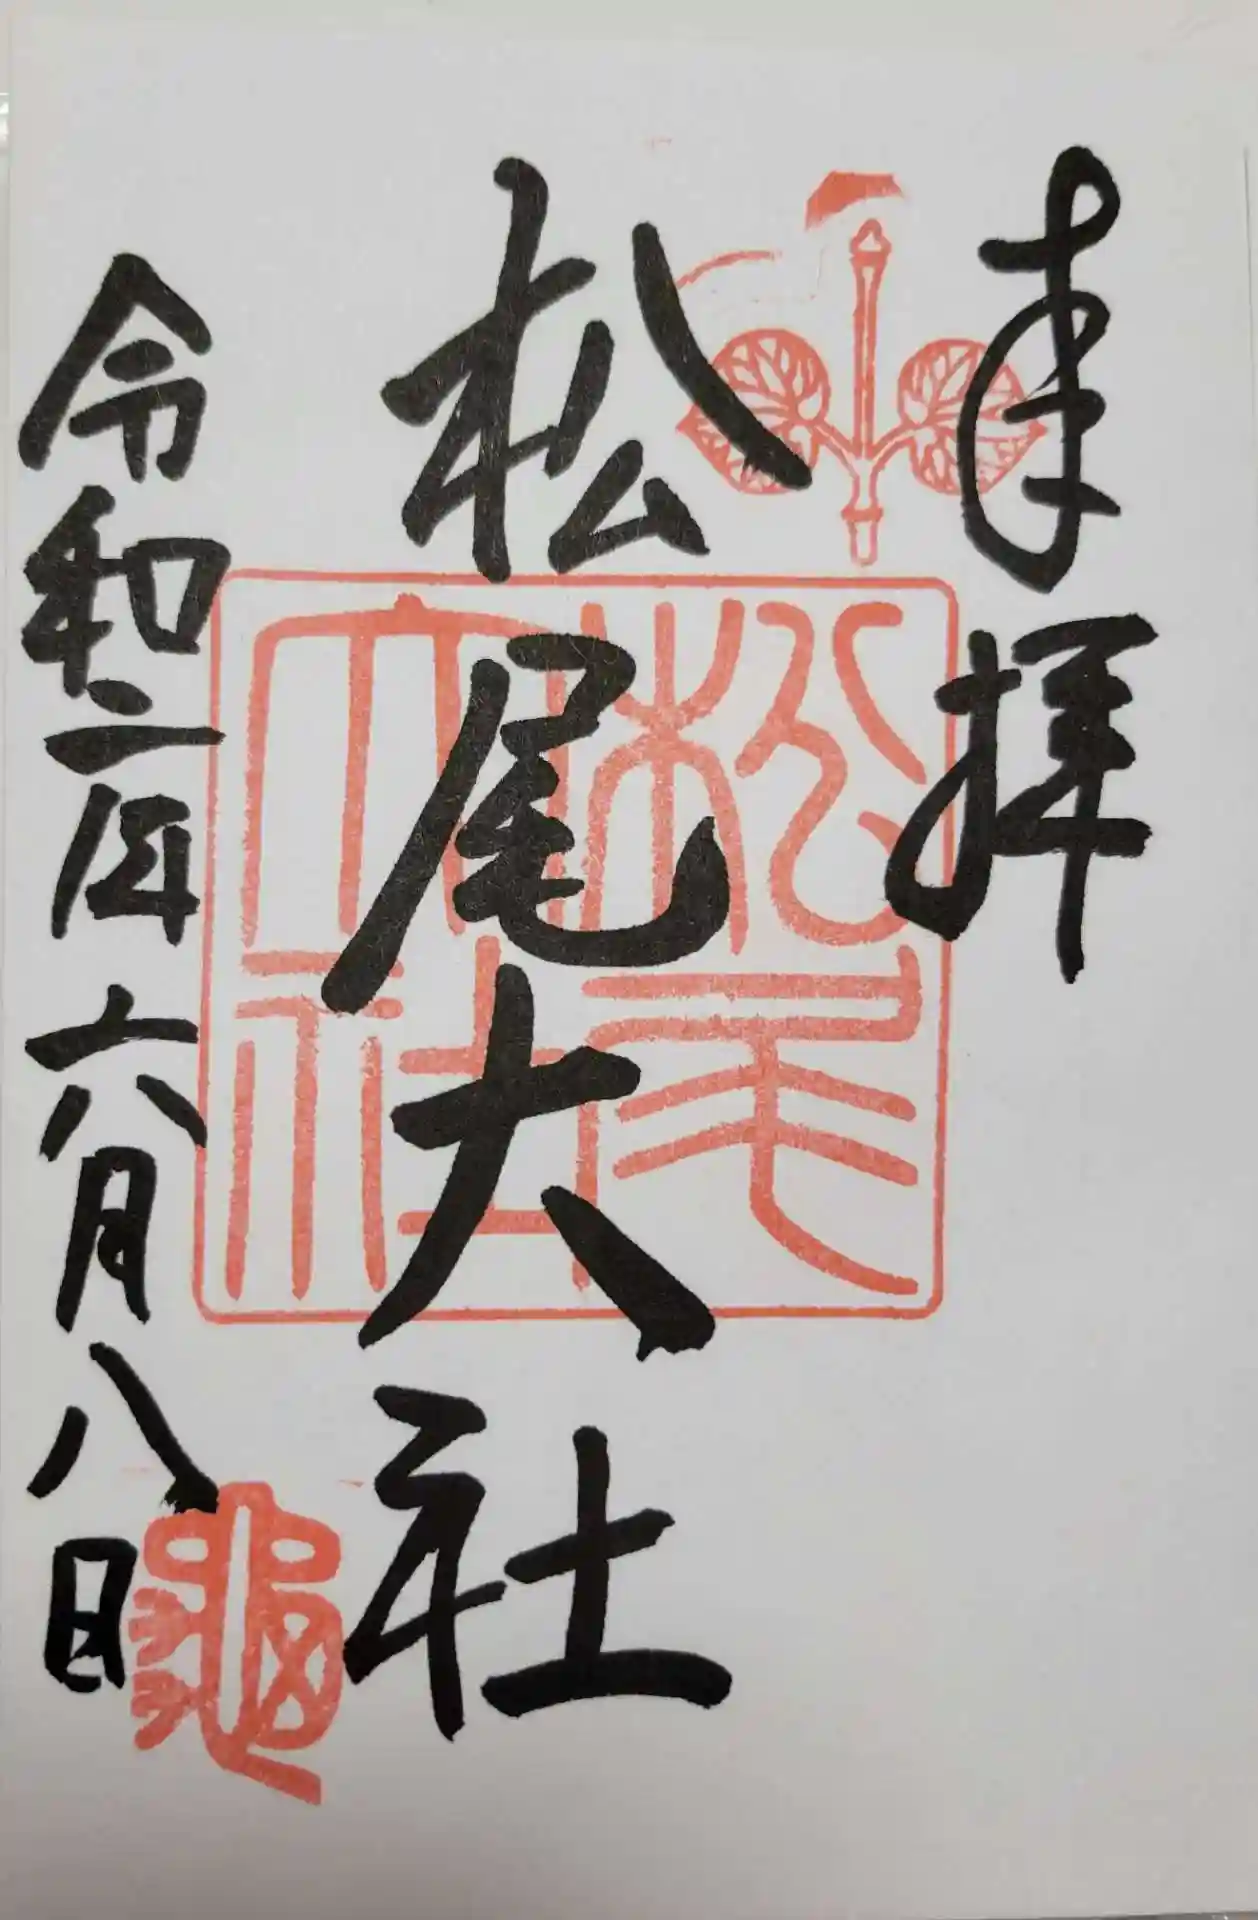 奉拝
松尾大社
令和二年六月八日
松尾大社
亀